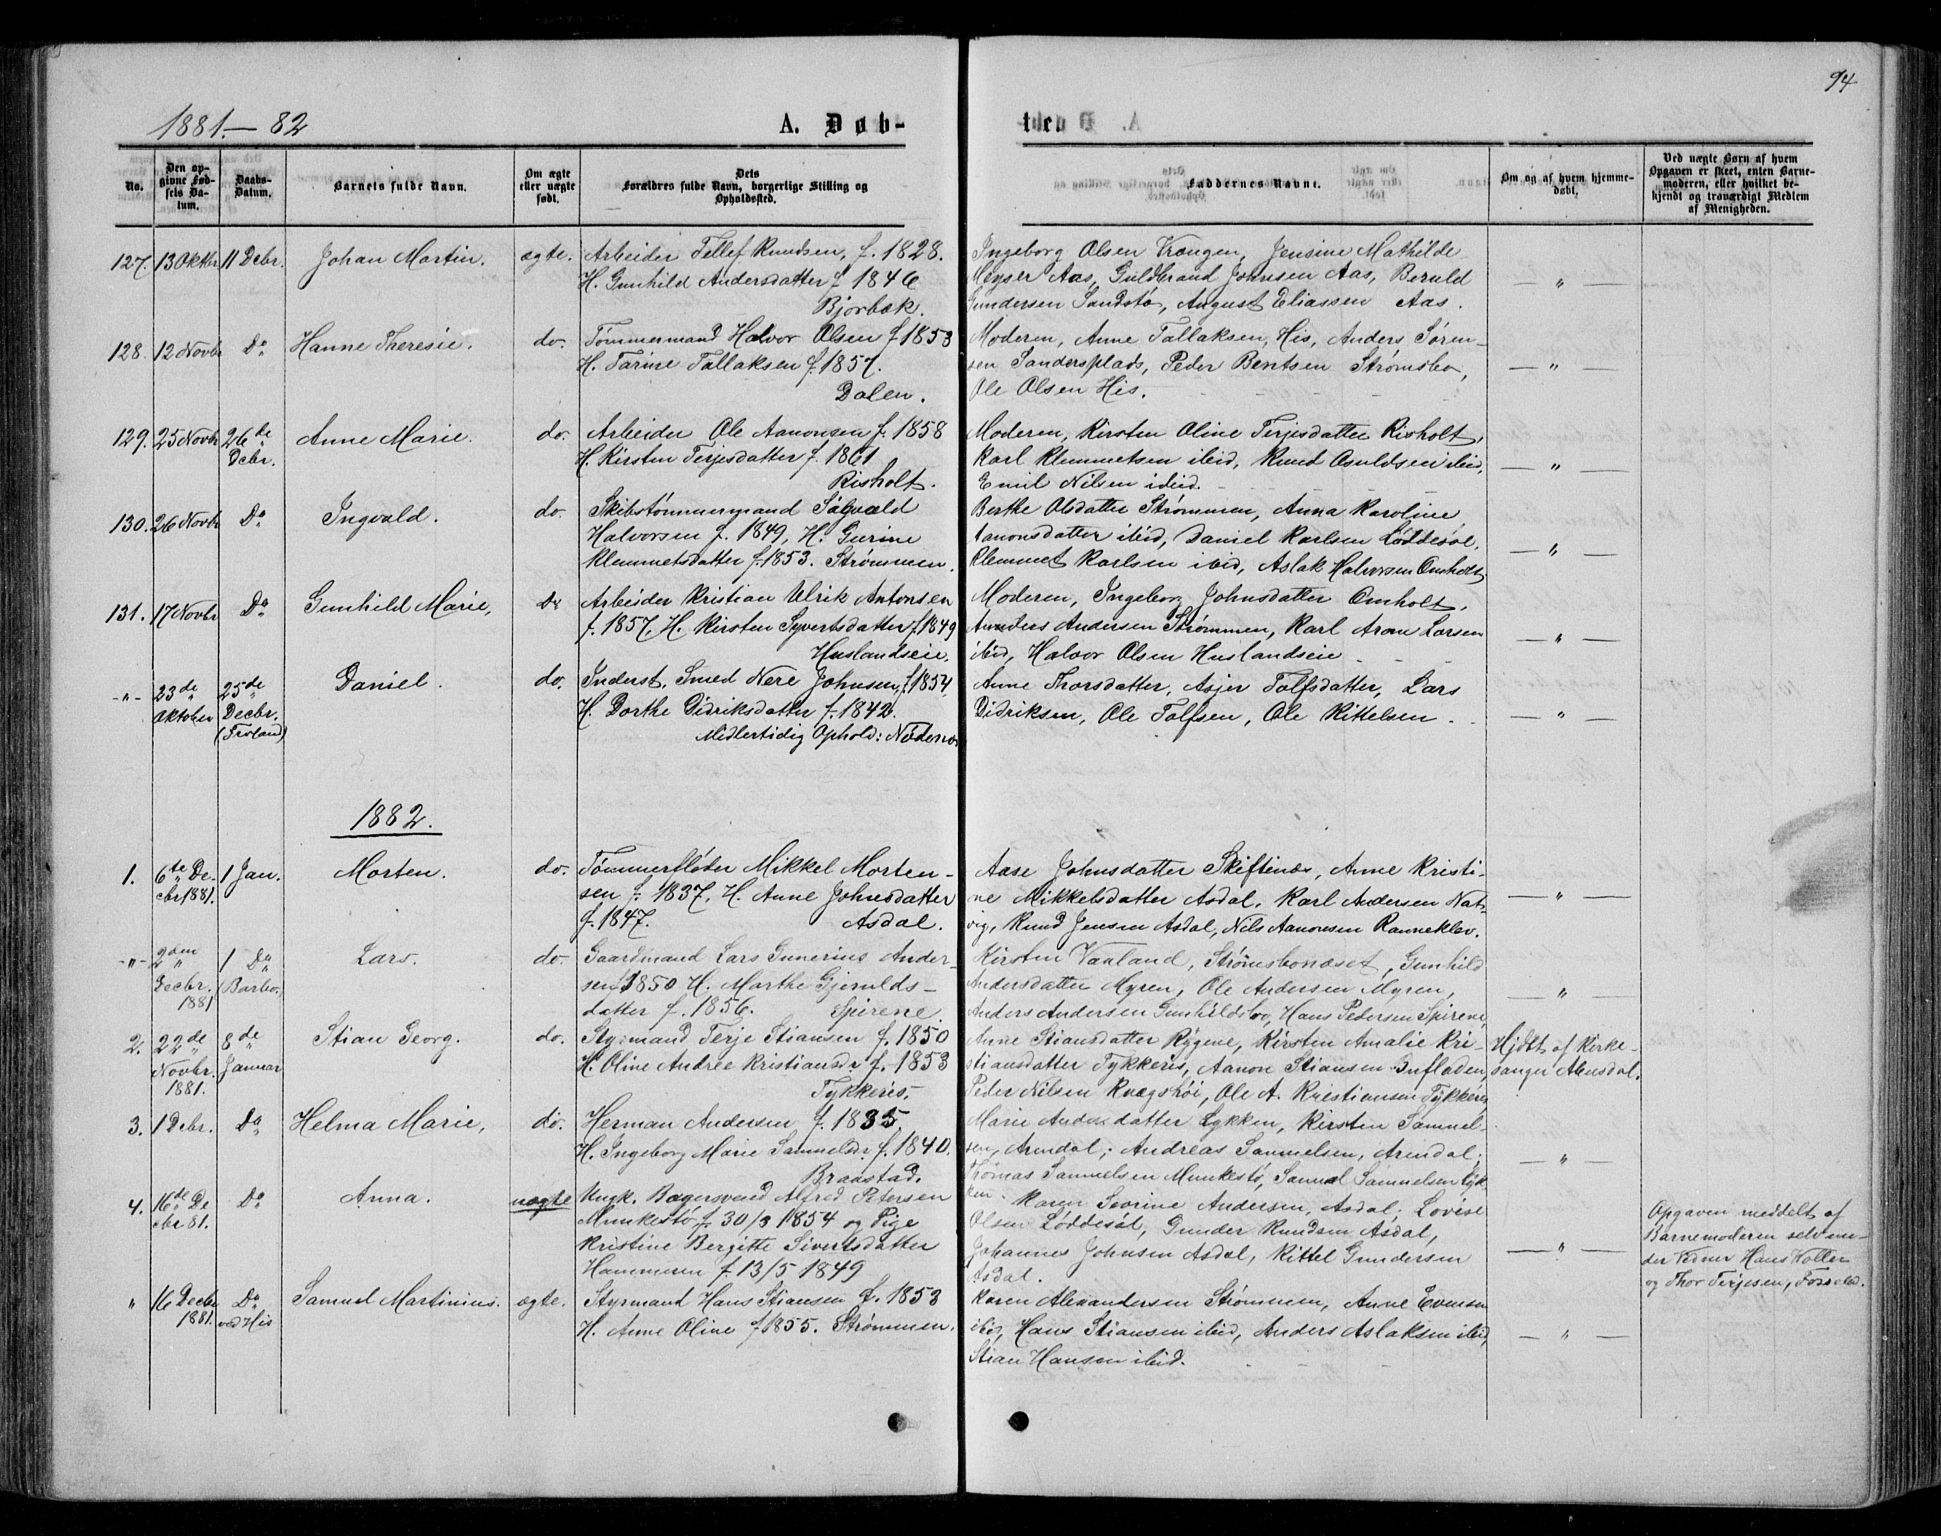 94
1881.-82
A. Døb-
te.
No.
Den op-
givne Fød-
sels Da-
tum.
Daabs-
Datum.
Barnets fulde Navn.
Om ægte
eller uægte
født.
Dets
Forældres fulde Navn, borgerlige Stilling og
Opholdssted.
Faddernes Navne.
Om og af hvem hjemme-
døbt.
Ved uægte Børn af hvem
Opgaven er skeet, enten Barne-
moderen, eller hvilket be-
kjendt og troværdigt Medlem
af Menigheden.
127. 13 Oktbr. 11 Debr. Johan Martin. ægte. Arbeider Tellef Knudsen, f. 1828.
H. Gunhild Andersdatter f 1846
Bjorbæk.
Ingeborg Olsen Vrængen, Jensine Mathilde
Heyser Aas, Guldbrand Johnsen Aas, Beruld
Gundersen Sandstø, August Eliassen Aas.
— " —
128. 12 Novbr Do Hanne Theresie. do. Tømmermand Halvor Olsen f 1853
H. Tarine Tallaksen f. 1857.
Dalen.
Moderen, Anne Tallaksen, His, Anders Søren-
sen Sandersplads, Peder Bentsen Strømsbo,
Ole Olsen His.
— " —
129. 25 Novbr 26de Debr. Anne Marie. do. Arbeider Ole Aanonsen f. 1858
H. Kirsten Terjesdatter f. 1861
Risholt.
Moderen, Kirsten Oline Terjesdatter Risholt,
Karl Klemmetsen ibid, Knud Osuldsen ibid,
Emil Nilsen ibid.
— " —
130. 26 Novbr Do Ingvald. do. Skibstømmermand Sigvald
Halvorsen f. 1849, H. Gurine
Klemmetsdatter f. 1853. Strømmen.
Berthe Olsdatter Strømmen, Anna Karoline
Aanonsdatter ibid, Daniel Karlsen Løddesøl,
Klemmet Karlsen ibid, Aslak Halvorsen Omholt
— " —
131. 17 Novbr Do Gunhild Marie, do Arbeider Kristian Ulrik Antonsen
f. 1857. H. Kirsten Syvertsdatter f. 1849
Huslandseie.
Moderen, Ingeborg Johnsdatter Omholt,
Anders Andersen Strømmen, Karl Aron Larsen
ibid, Halvor Olsen Huslandseie
— " —
-"- 23de Oktober 25de Decbr. (Froland) Daniel. do. Inderst, Smed Nere Johnsen, f. 1854
H. Dorthe Didriksdatter f. 1842.
Midlertidig Ophold: Nædenes
Anne Thorsdatter, Asjer Tolfsdatter, Lars
Didriksen, Ole Tolfsen, Ole Kittelsen.
— " —
1882.
1. 6te De-
cbr 1881. 1 Jan. Morten. do. Tømmerfløder Mikkel Morten-
sen f. 1837, H. Anne Johnsdatter
f. 1847. Asdal.
Aase Johnsdatter Skiftenæs, Anne Kristi-
ne Mikkelsdatter Asdal, Karl Andersen Nat-
vig, Knud Jensen Asdal, Nils Aanonsen Ranneklev.
— " —
-"- 2den Decbr. 1881 1 Do (Barbo.) Lars. do. Gaardmand Lars Gunerius Ander-
sen f 1850 H. Marthe Gjerulds-
datter f. 1856. Spirene.
Kirsten Vaaland, Strømsbonæset, Gunhild
Andersdatter Myren, Ole Andersen Myren,
Anders Andersen Gunhildsbo, Hans Pedersen Spirene,
— " —
2. 22de Novbr. 1881. 8de Januar Stian Georg. do. Styrmand Terje Stiansen f. 1850
H. Oline Andrée Kristiansdr f. 1853
Tykkeris.
Anne Stiansdatter Rygene, Kirsten Amalie Kri-
stiansdatter Tykkeris, Aanon Stiansen Infladen,
Peder Nilsen Kvægshøi, Ole A. Kristiansen Tykkeris
Hjdbt af Kirke-
sanger Aamsdal.
3. 1 Debr. Do Helma Marie, do. Herman Andersen f. 1835.
H. Ingeborg Marie Samuelsdr. f. 1840.
Braastad.
Marie Andersdatter Lykken, Kirsten Samuel-
sen, Arendal; Andreas Samuelsen, Arendal;
Thomas Samuelsen Munkestø, Samuel Samuelsen Lyk-
ken.
— " —
4. 16de De
cbr 81. Do Anna. uægte Ungk. Bagersvend Alfred Petersen
Munkestø f. 30/3 1854 og Pige
Kristine Bergitte Sivertsdatter
Hammeren f. 13/5 1849
Karen Severine Andersen, Asdal; Lovise
Olsen Løddesøl, Gunder Knudsen Asdal,
Johannes Johnsen Asdal, Kittel Gundersen
Asdal.
— " —
Opgaven meddelt af
Barnemoderen selv un-
der Vidner Hans Koller
og Thor Terjesen,
" 16 Decbr 1881. Do ved His Samuel Martinius. ægte. Styrmand Hans Stiansen f. 1853
H. Anne Oline f 1855. Strømmen.
Karen Alexandersen Strømmen, Anne Evensen
ibid, Hans Stiansen ibid, Anders Aslaksen ibid,
Stian Hansen ibid.
— " —